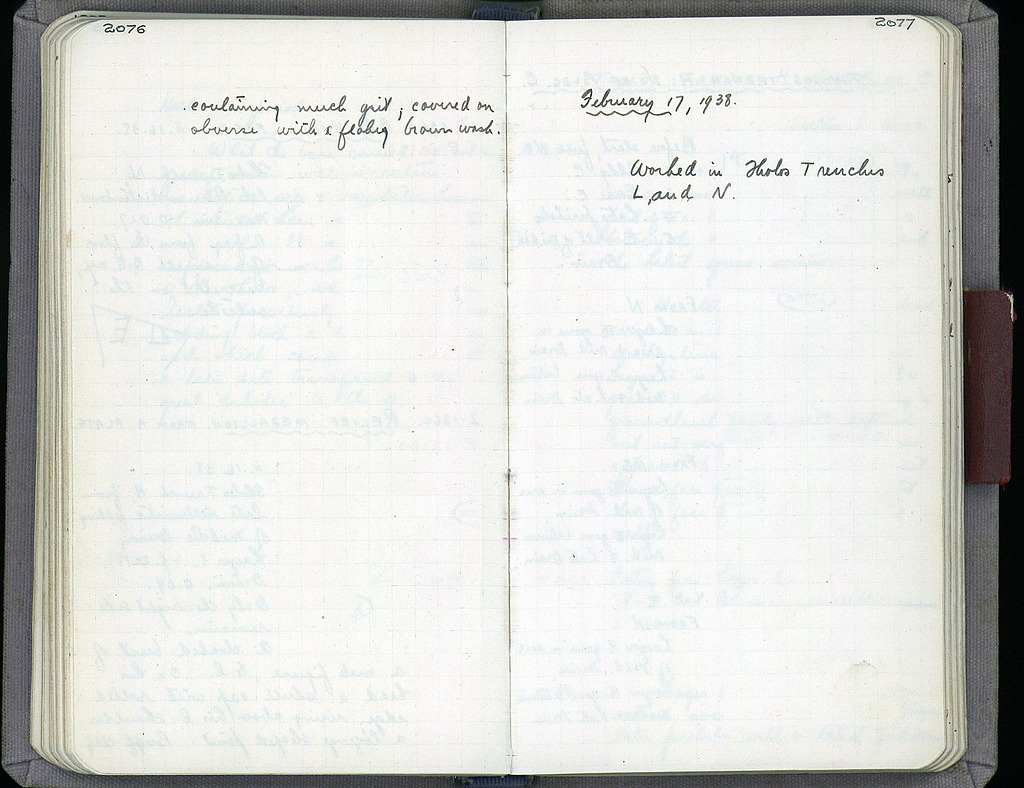 2076
containing much grit; covered on
obverse with a flaky brown wash.
2077
February 17, 1938.
Worked in Tholos Trenches
L and N.